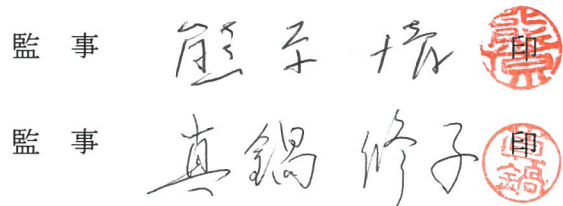 監 事 熊平 印
監 事 真鍋 修子 印